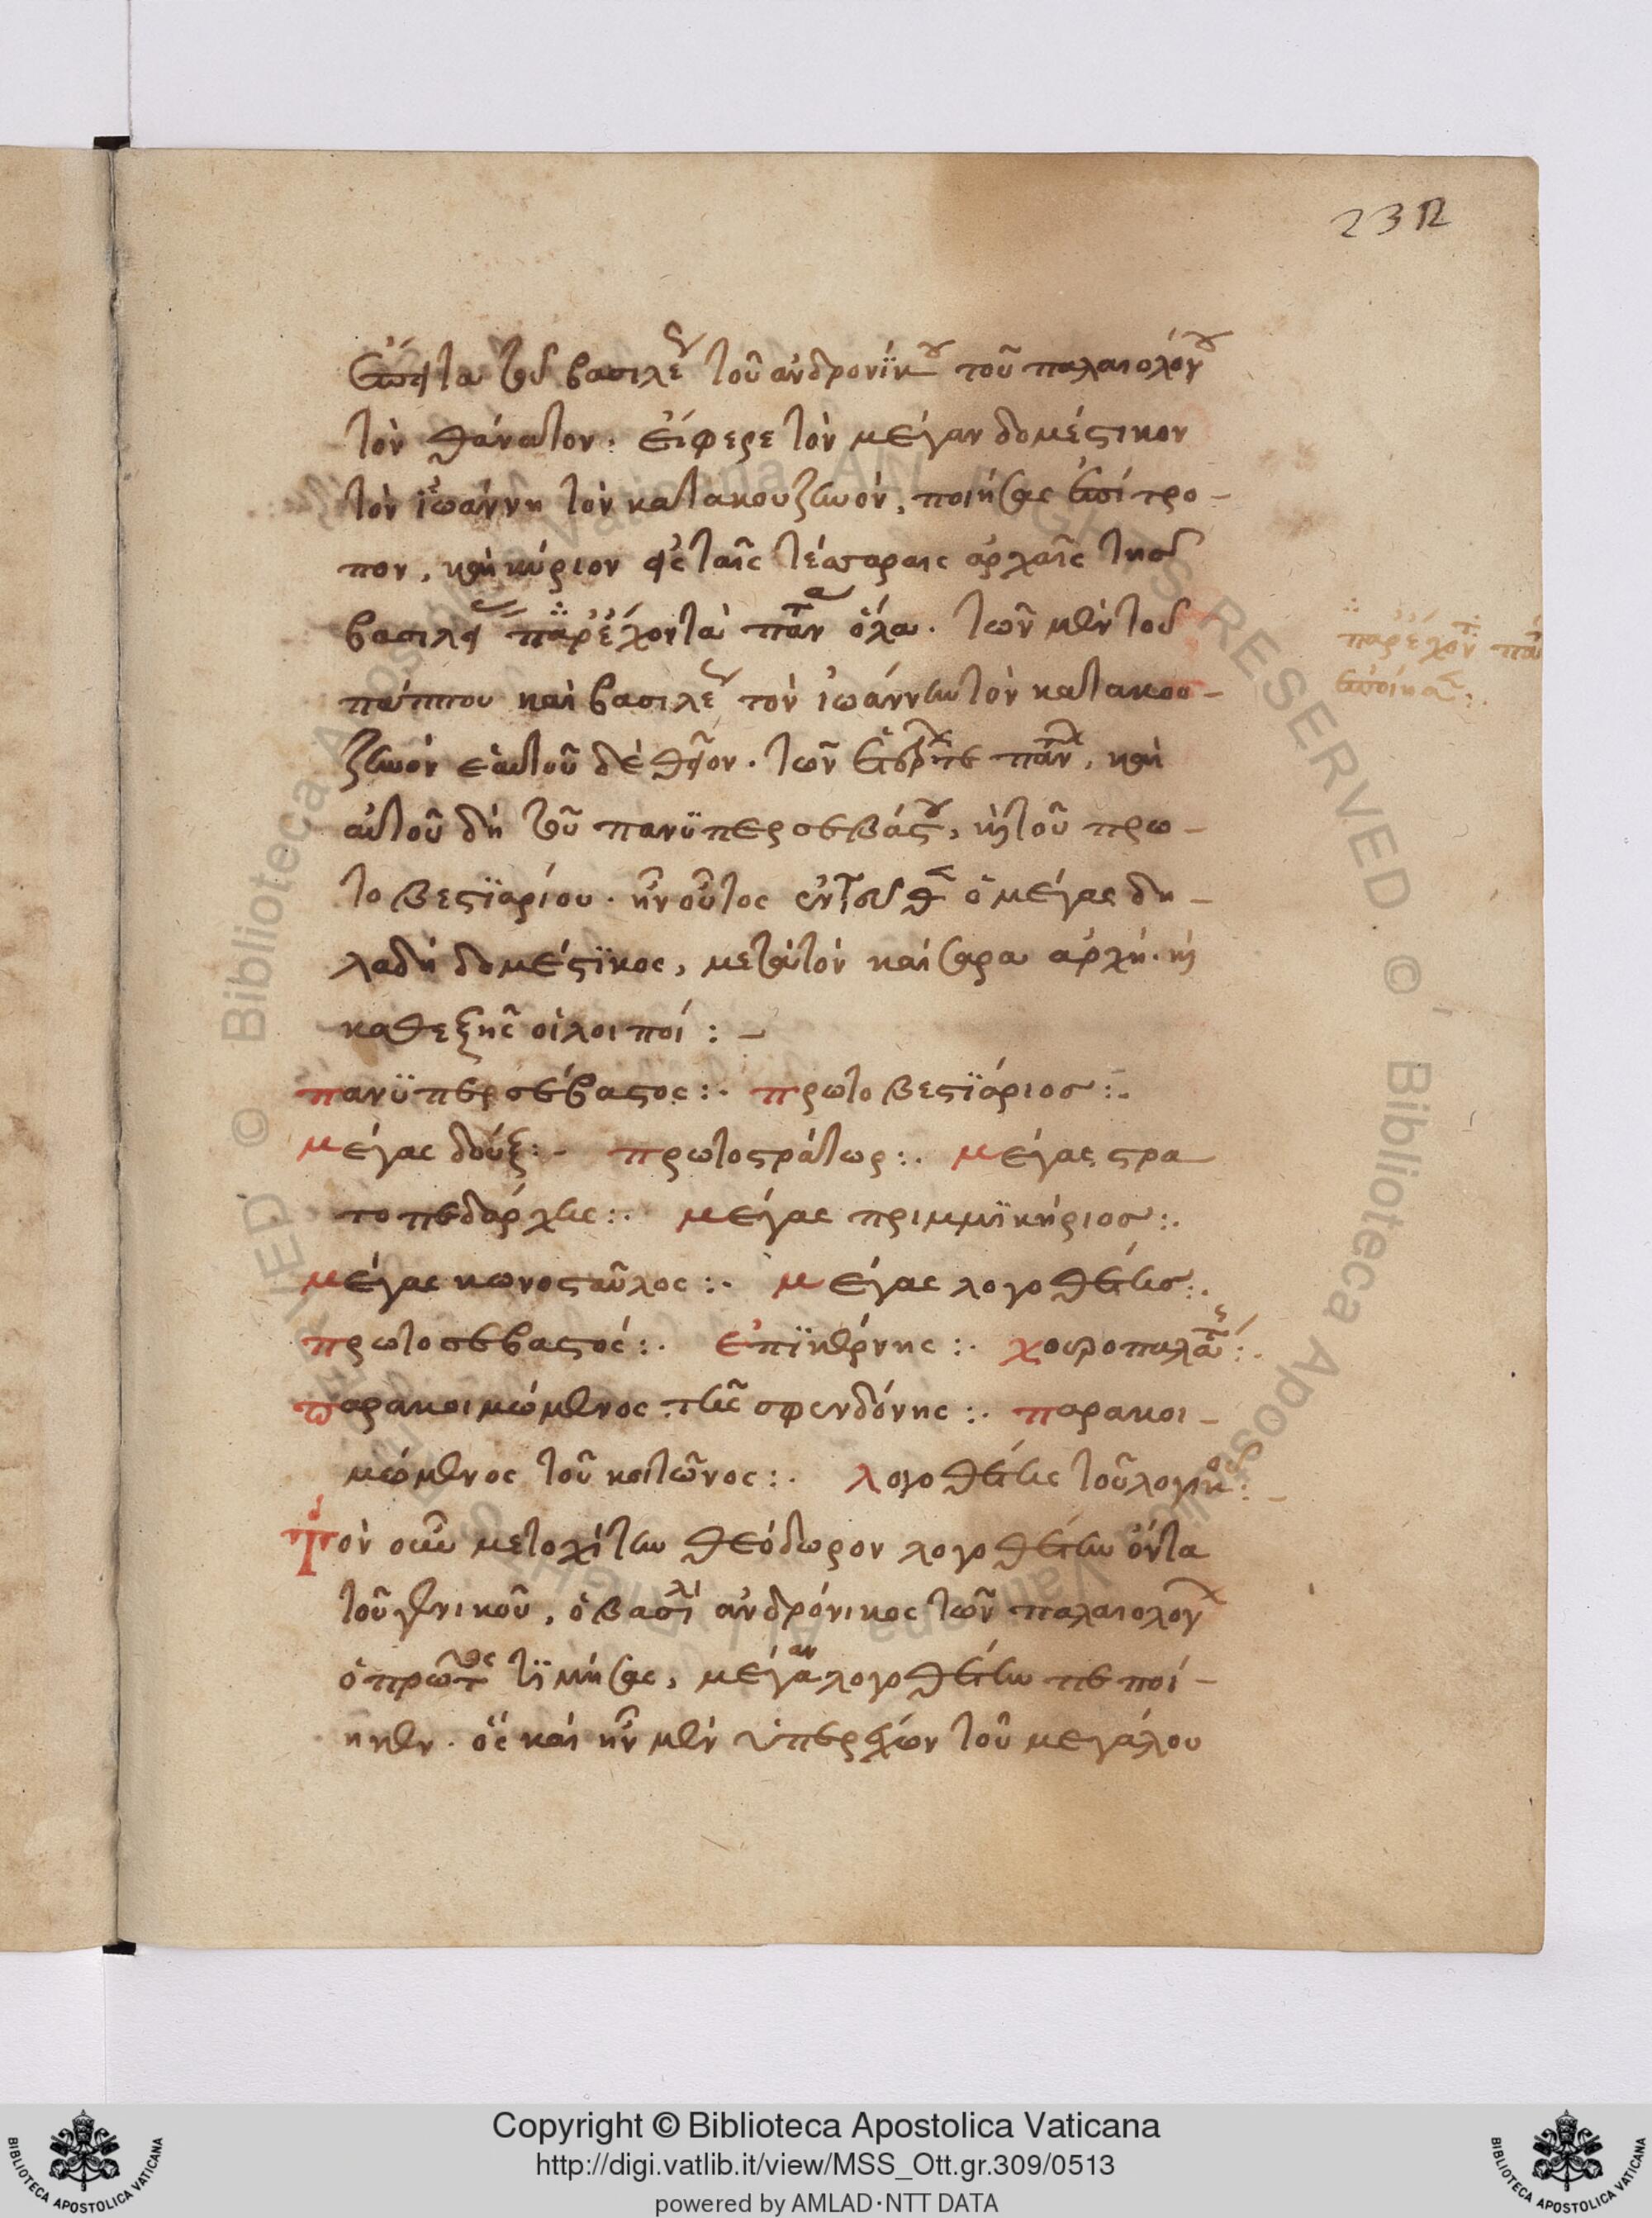 232
ἔπειτα τοῦ βασιλέως τοῦ ἀνδρονίκου τοῦ παλαιολόγου
τὸν θάνατον: εἴφερε τὸν μέγαν δομέστικον
τὸν ἰωάννη τὸν κατακουζηνὸν, ποιήσας ἐπίτρο-
πον, καὶ κύριον ἐν ταῖς τέσσαραις ἀρχαῖς τῆς
βασιλεί παρέχοντα πάντα ὅλα. τῶν μὲν τοῦ
παρέχον
πάππου καὶ βασιλέως τὸν ἰωάννην τὸν κατακου-
ζηνὸν ἑαυτοῦ δὲ θεῖον. τῶν πάντων, καὶ
αὐτοῦ δὴ τοῦ πανϋπερσεβάστου, καὶ τοῦ πρω-
τοβεστϊαρίου. ἦν οὗτος ἐνταῦθα ὁ μέγας δη-
λαδὴ δομέστϊκος, μετὰ τὸν καίσαρα ἀρχὴ. καὶ
καθεξῆς οἱ λοιποί :-
πανϋπερσέβαστος:. πρωτοβεστϊάριος:.
μέγας δούξ:- πρωτοστράτωρ:. μέγας στρα
τοπεδάρχης:. μέγας πριμμϊκήριος:.
μέγας κονοσταῦλος:. μέγας λογοθέτης:.
πρωτοσεβαστός:. ἐπϊκέρνης:. χουροπαλάτης:.
παρακοιμώμενος τῆς σφενδόνης:. παρακοι-
μώμενος τοῦ κοιτῶνος:. λογοθέτης τοῦ λογικοῦ:-
τὸν οὖν μετοχίτην θεόδωρον λογοθέτην ὄντα
τοῦ γενικοῦ, ὁ βασιλεὺς ἀνδρόνικος τῶν παλαιολόγων
ὁ πρῶτος τϊμήσας, μέγαν λογοθέτην πεποί-
ηκεν. ὃς καὶ ἦν μὲν ὑπερέχων τοῦ μεγάλου
Copyright © Biblioteca Apostolica Vaticana
http://digi.vatlib.it/view/MSS_Ott.gr.309/0513
powered by AMLAD·NTT DATA
BIBLIOTECA APOSTOLICA VATICANA
BIBLIOTECA APOSTOLICA VATICANA